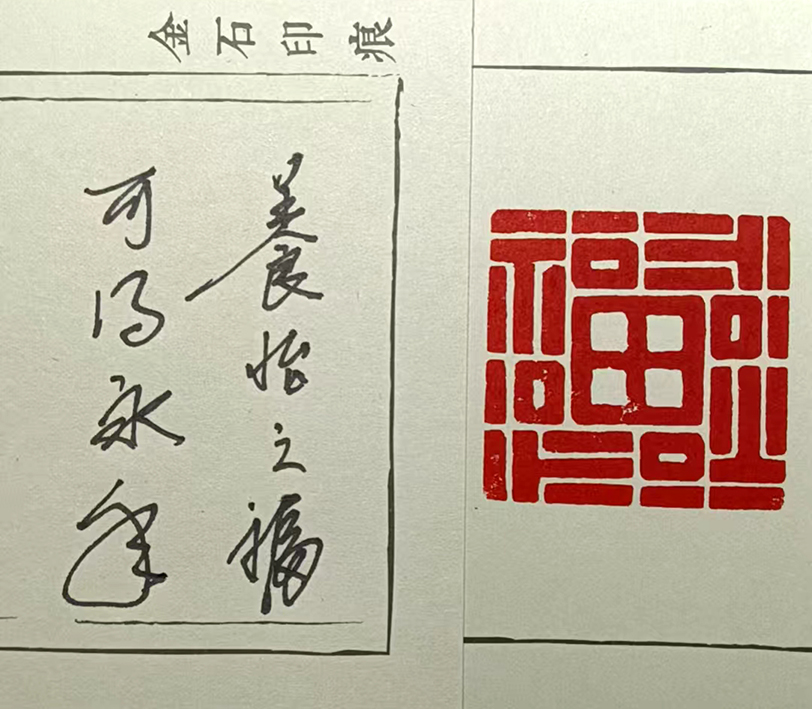 金石印痕
養怡之福
可得永年
福